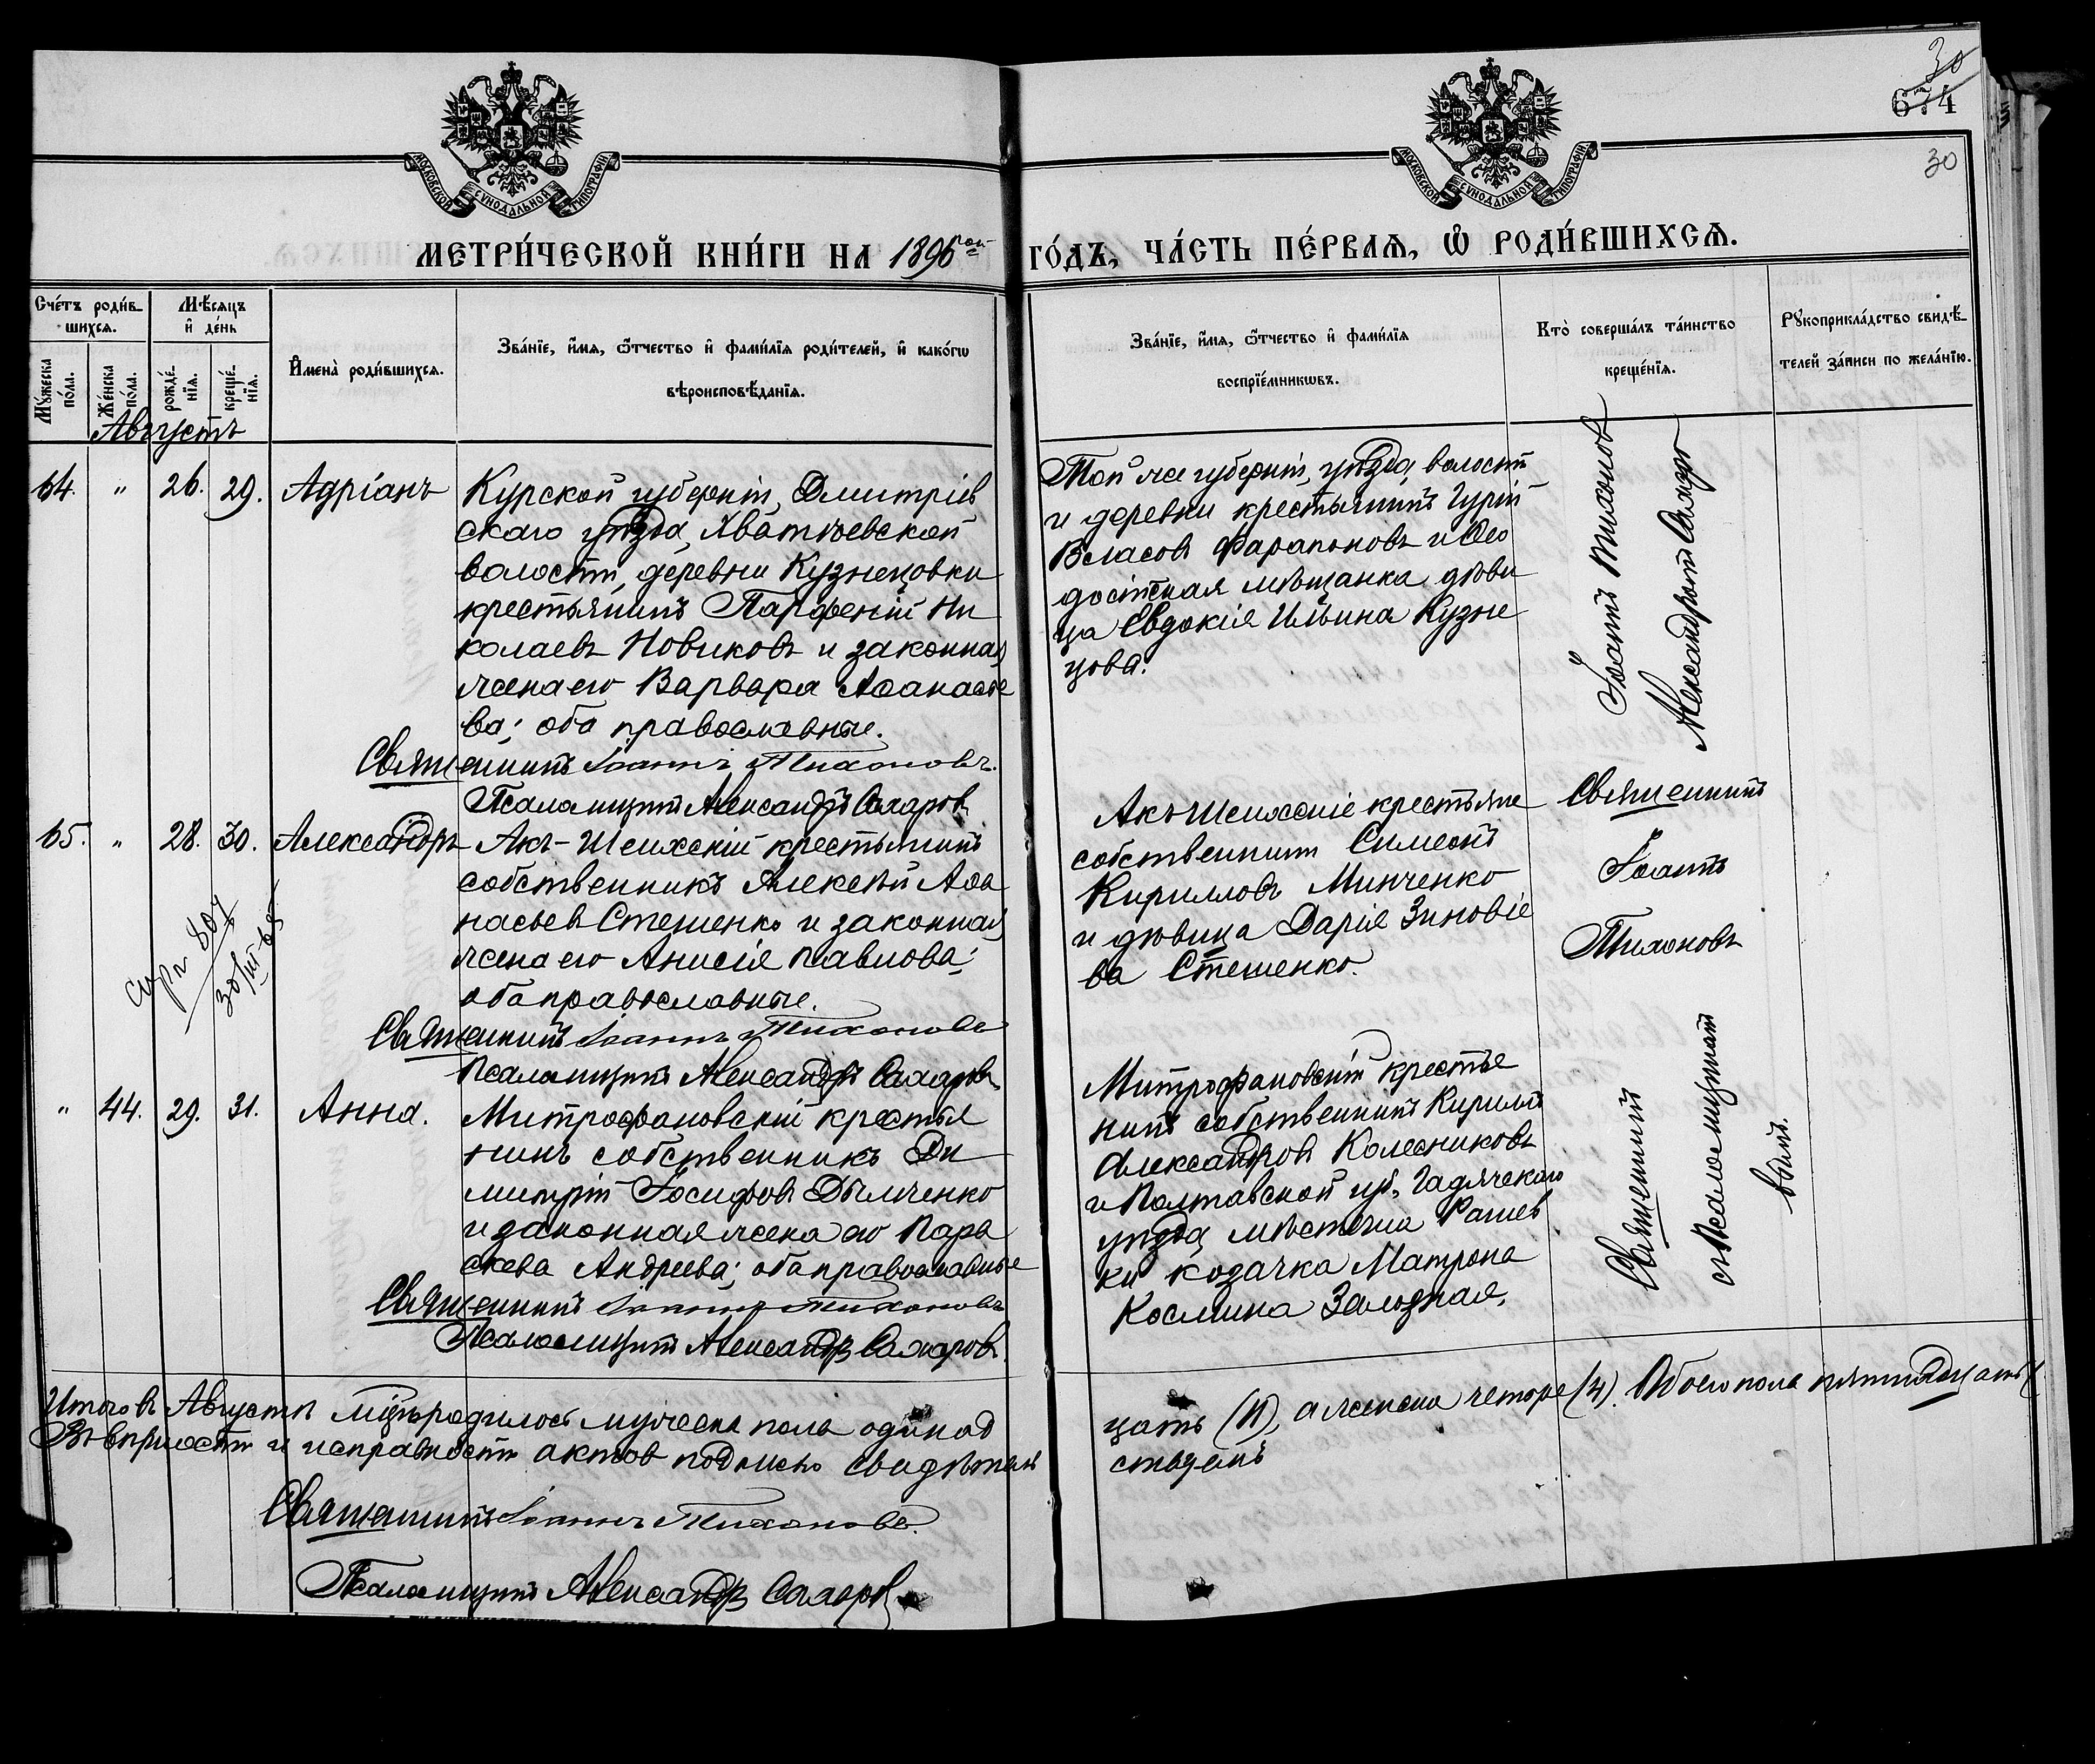 МОСКОВСКОЙ СѴНОДАЛЬНОЙ ТИПОГРАФІИ
МОСКОВСКОЙ СѴНОДАЛЬНОЙ ТИПОГРАФІИ
30
674
30
МЕТРИ́ЧЕСКОЙ КНИ́ГИ НА 1896 ГО́ДЪ, ЧА́СТЬ ПЕ́РВАѦ, Ѡ҆ РОДИ́ВШИХСѦ.
Сче́тъ роди́в-
шихсѧ.
Мѣ́сѧцъ
и҆ де́нь
Мꙋ́жеска
по́ла.
Же́нска
по́ла.
рожде́-
нїѧ.
креще́-
нїѧ.
И҆мена̀ роди́вшихсѧ.
Зва́нїе, и҆́мѧ, ѻ҆́тчество и҆ фами́лїѧ роди́телей, и҆ како́гѡ
вѣроисповѣ́данїѧ.
Зва́нїе, и҆́мѧ, ѻ҆́тчество и҆ фами́лїѧ
воспрїе́мникѡвъ.
Кто̀ соверша́лъ та́инство
креще́нїѧ.
Рꙋкоприкла́дство свидѣ́-
телей за́писи по жела́нїю.
Августъ
64. " 26. 29. Адріанъ
Курской губерніи, Дмитріев
скаго уѣзда,
волости, деревни Кузнецовки
крестьянинъ Парфеній Ни
колаевъ Новиковъ и законная
жена его Варвара Аѳанасье
ва; оба православные.
Священникъ Іоаннъ Тихоновъ.
Псаломщикъ Александръ Сахаровъ
Той же губерніи, уѣзда, волости
и деревни крестьянинъ Гурій
Власовъ Фарапоновъ и Ѳео
досійская мѣщанка дѣви
ца Евдокія Ильина Кузне
цова.
Іоаннъ Тихоновъ
Александръ Сахаровъ
65. " 28. 30. Александръ
Акъ-Шеихскій крестьянинъ
собственникъ Алексѣй Аѳа
насьевъ Стешенко и законная
жена его Анисія Павлова;
оба православные.
Священникъ Іоаннъ Тихоновъ
Псаломщикъ Александръ Сахаровъ
Акъ Шеихскіе крестьяне
собственники Симеонъ
Кирилловъ Минченко
и дѣвица Дарія Зиновіе
ва Стешенко.
Священникъ
Іоаннъ
Тихоновъ
" 44. 29. 31. Анна.
Митрофановскій крестья
нинъ собственникъ Ди
митрій Іосифовъ Дымченко
и законная жена его Пара
скева Андреева; оба православные
Священникъ Іоаннъ Тихоновъ
Псаломщикъ Александръ Сахаровъ.
Митрофановскій крестья
нинъ собственникъ Кириллъ
Александровъ Колесниковъ
и Полтавской губ. Гадячскаго
уѣзда, мѣстечка Рашев
ки козачка Матрона
Космина
Священникъ
съ Псаломщикомъ
Итого въ Августѣ мѣсяцѣ родилось мужеска пола одинад
цать (11), а женска четыре (4). Обоего пола пятнадцать (
Въ вѣрности и исправности актовъ подписью свидѣтель
ствуемъ
Священникъ Іоаннъ Тихоновъ.
Псаломщикъ Александръ Сахаровъ